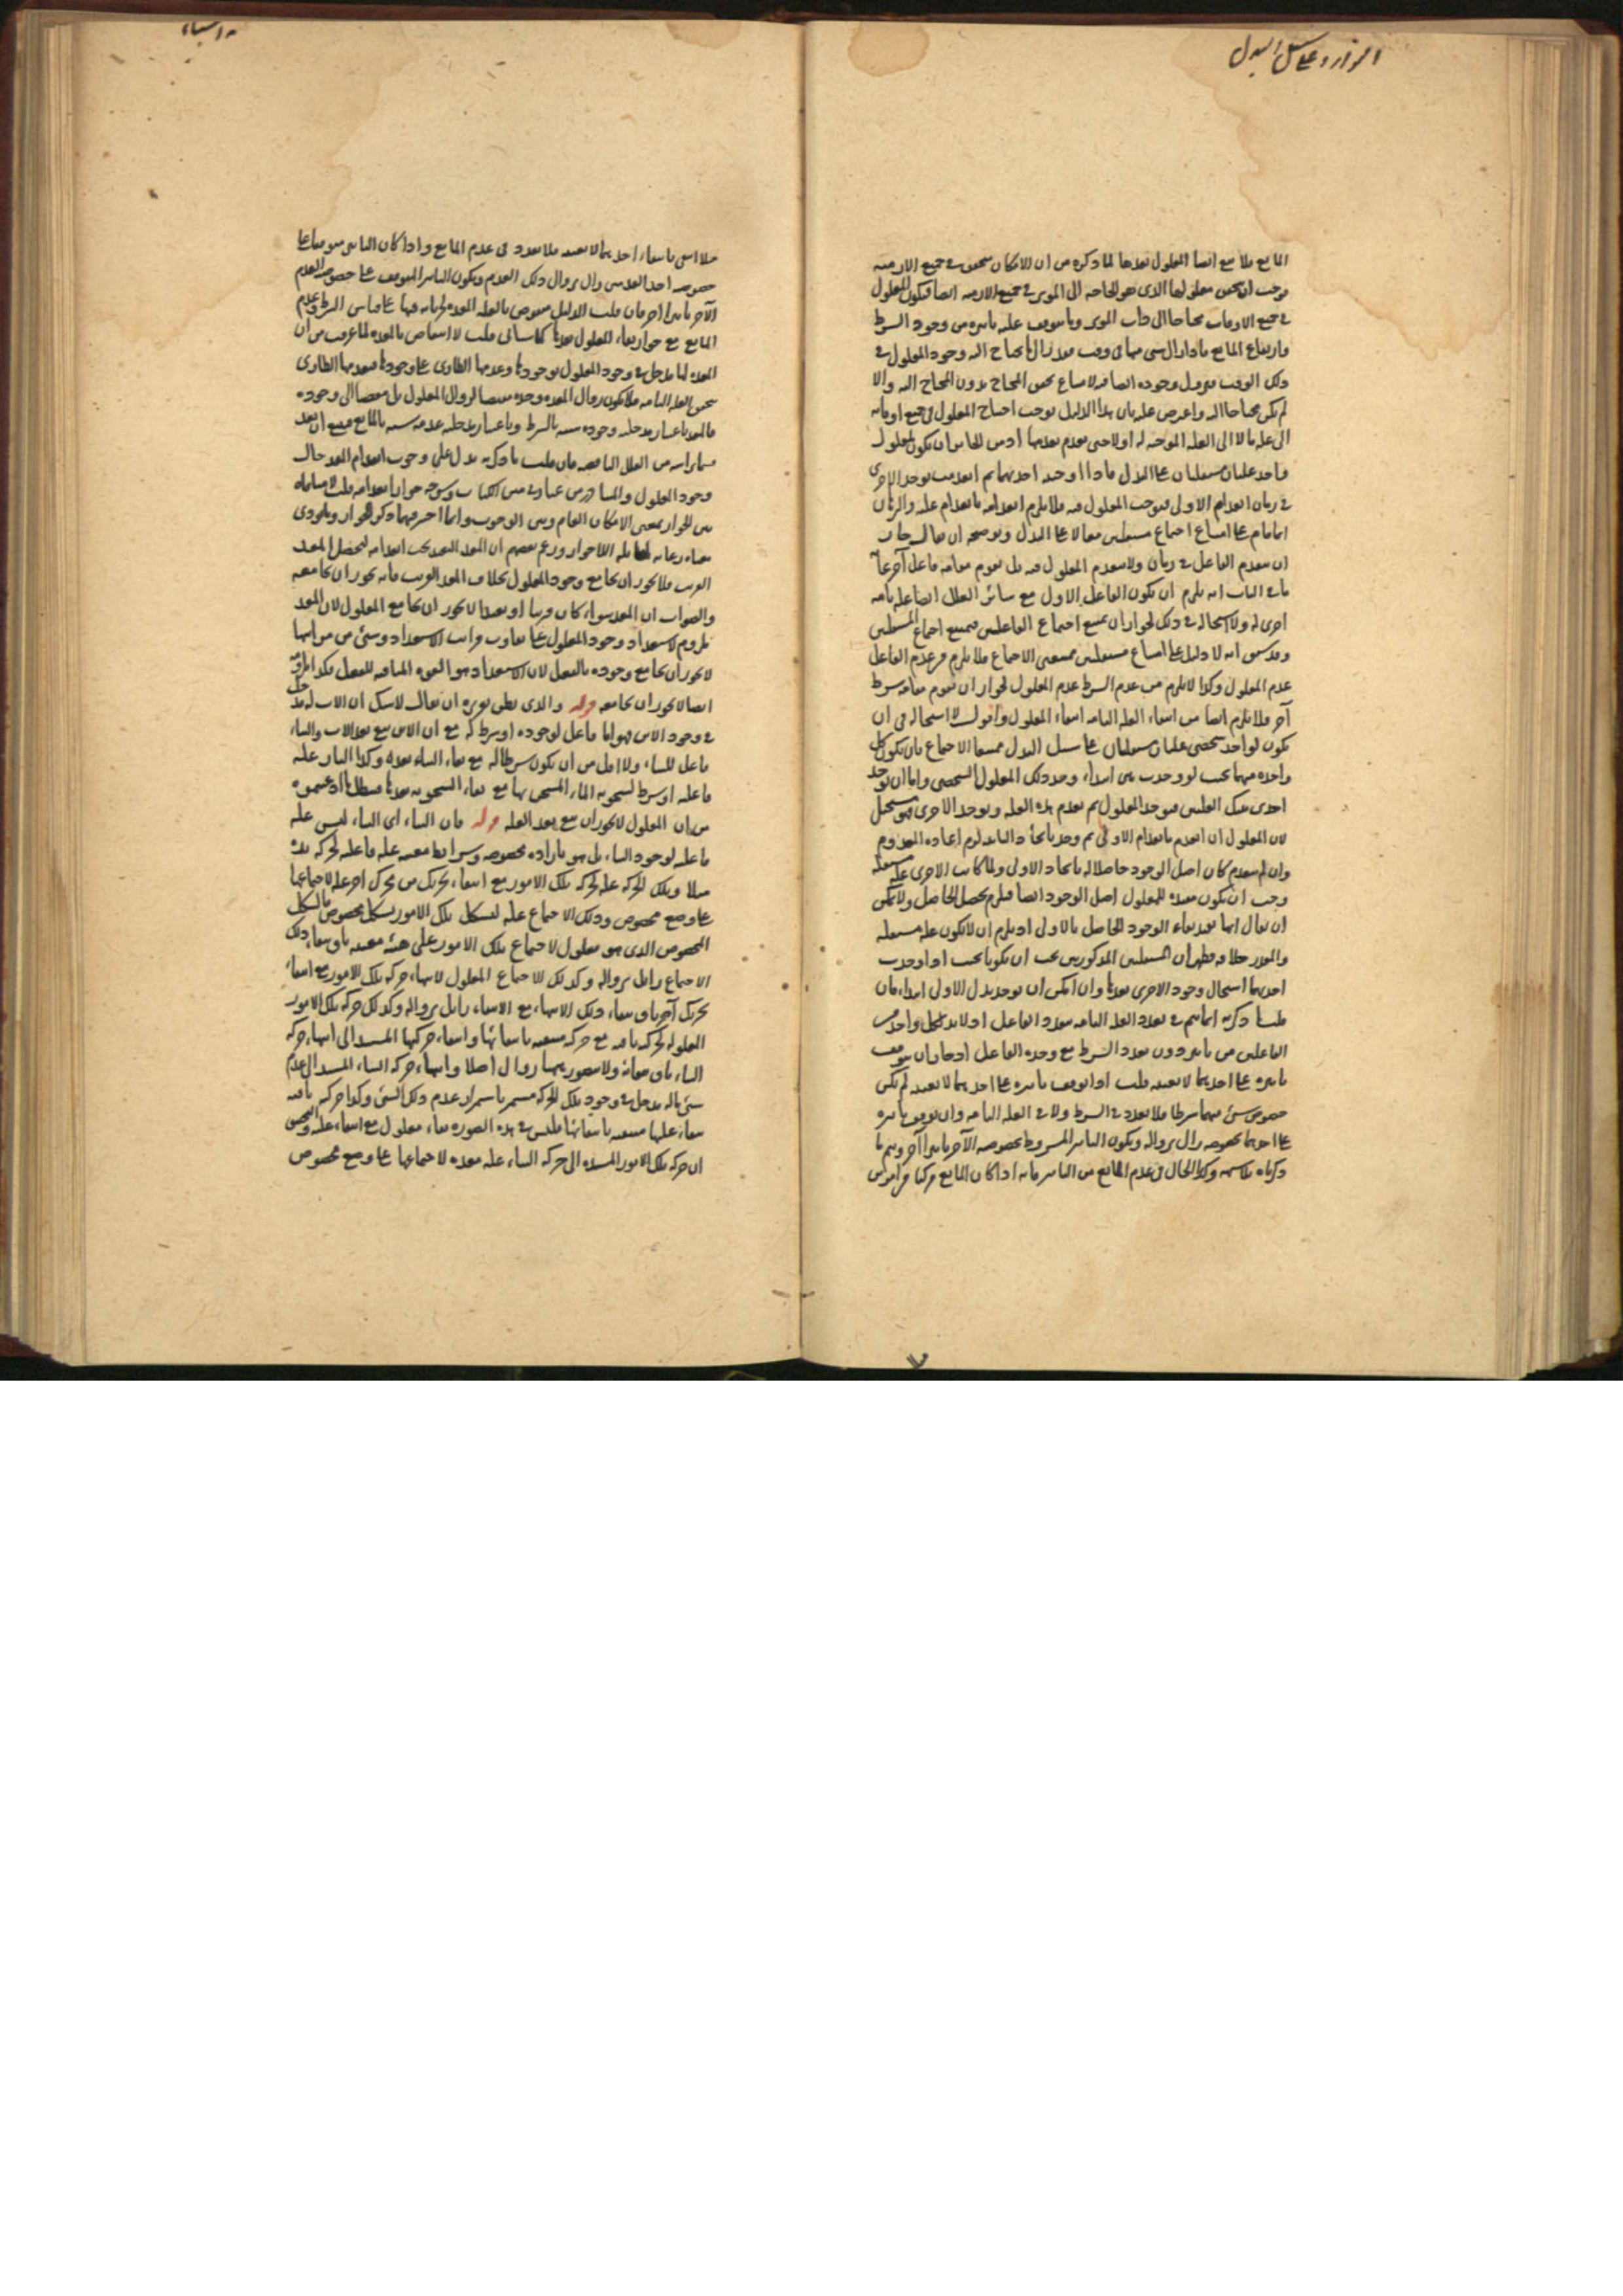 التوارد على سبيل البدل
المانع فلا مع انتفاء المعلول بعدها لما ذكره من ان الامكان متحقق في جميع الازمنة
فوجب ان يتحقق معلولها الذى هو الحاجة الى الموثر في جميع الازمنة ايضا فيكون المعلول
في جميع الاوقات محتاجا الى ذات الموثر وما يتوقف عليه تاثيره من وجود الشرط
وارتفاع المانع فاذا زال شئ منها في وقت فقد زال ما يحتاج اليه وجود المعلول في
ذلك الوقت فيزول وجوده ايضا فيه لامتناع تحقق المحتاج بدون المحتاج اليه والا
لم يكن محتاجا اليه واعترض عليه بان هذا الدليل يوجب احتياج المعلول في جميع اوقاته
الى علة ما لا الى العلة الموجدة له اولا حتى يعدم بعدمها اذ من الجائز ان يكون لمعلول
واحد علتان مستقلتان على البدل فاذا اوجدته احديهما ثم انعدمت توجد الاخرى
في زمان انعدام الاولى فتوجب المعلول فيه فلا يلزم انعدامه بانعدام علته والبرهان
انما قام على امتناع اجتماع مستقلتين معا لا على البدل وتوضيحه ان يقال جاز
ان ينعدم الفاعل في زمان ولا ينعدم المعلول فيه بل يقوم مقامه فاعل آخر غاية
ما في الباب انه يلزم ان يكون الفاعل الاول مع سائر العلل ايضا علة تامة
اخرى له ولا استحالة في ذلك لجواز ان يمتنع اجتماع الفاعلين فيمتنع اجتماع المستقلتين
وقد سبق انه لا دليل على امتناع مستقلتين ممتنعتى الاجتماع فلا يلزم من عدم الفاعل
عدم المعلول وكذا لا يلزم من عدم الشرط عدم المعلول لجواز ان يقوم مقامه شرط
آخر فلا يلزم ايضا من انتفاء العلة التامة انتفاء المعلول واقول لا استحالة في ان
يكون لواحد شخصى علتان مستقلتان على سبيل البدل ممتنعتا الاجتماع بان يكون كل
واحدة منهما بحيث لو وجدت هى ابتداء وجد ذلك المعلول الشخصى واما ان توجد
احدى تينك العلتين فيوجد المعلول ثم تعدم هذه العلة وتوجد الاخرى فهو مستحيل
لان المعلول ان انعدم بانعدام الاولى ثم وجد بايجاد الثانية لزم اعادة المعدوم
وان لم ينعدم كان اصل الوجود حاصلا له بايجاد الاولى ولما كانت الاخرى علة مستقلة
وجب ان يكون مفيدة للمعلول اصل الوجود ايضا فيلزم تحصيل الحاصل ولا يمكن
ان يقال انها تفيد بقاء الوجود الحاصل بالاولى اذ يلزم ان لا يكون علة مستقلة
والمقدر خلافه فظهر ان المستقلتين المذكورتين يجب ان يكونا بحيث اذا وجدت
احديهما استحال وجود الاخرى بعدها وان امكن ان توجد بدل الاولى ابتداء فان
قلت ما ذكرته انما يتم في تعدد العلة التامة بتعدد الفاعل اذ لا بد لكل واحد من
الفاعلين من تاثير دون تعدد الشرط مع وحدة الفاعل اذ جاز ان يتوقف
تاثيره على احديهما لا بعينه قلت اذا توقف تاثيره على احديهما لا بعينه لم يكن
خصوص شئ منهما شرطا فلا تعدد في الشرط ولا في العلة التامة وان توقف تاثيره
على احديهما بخصوصه زال بزواله ويكون التاثير المشروط بخصوصه الآخر تاثيرا آخر ويتم ما
ذكرناه بلا شبهة وكذا الحال في عدم المانع من التاثير فانه اذا كان المانع مركبا من امرين
والاشياء
فلا انتفى بانتفاء احديهما لا بعينه فلا تعدد في عدم المانع واذا كان التاثير متوقفا على
خصوصه احد العدمين زال بزوال ذلك العدم ويكون التاثير المتوقف على خصوصية العدم
الآخر تاثيرا آخر فان قلت الدليل منقوض بالعلة المعدة لجريانه فيها على قياس الشرط وعدم
المانع مع جواز بقاء المعلول بعدها كما سياتى قلت لا انتقاض بالمعدة لما عرفت من ان
المعدة لما مدخل في وجود المعلول بوجودها وعدمها الطارى على وجودها فبعدمها الطارى
يتحقق العلة التامة فلا يكون زوال المعدة وحده مقتضيا لزوال المعلول بل مفضيا الى وجوده
فالمعد باعتبار مدخلية وجوده شبيه بالشرط وباعتبار مدخلية عدمه شبيه بالمانع
وجود المعلول والمتبادر من عبارة متن الكتاب
القريب فلا يجوز ان يجامع وجود المعلول بخلاف المعد القريب فانه يجوز ان يجامعه
والصواب ان المعد سواء كان قريبا او بعيدا لا يجوز ان يجامع المعلول لان المعد
ملزوم لاستعداد وجود المعلول على تفاوت مراتب الاستعداد وشئ من مراتبها
لا يجوز ان يجامع وجوده بالفعل لان الاستعداد هو القوة المنافية للفعل فكذا ملزومه
ايضا لا يجوز ان يجامعه قوله والذى يظن نوره ان يقال لا شك ان الاب له مدخل
في وجود الابن فهو اما فاعل لوجوده او شرط له مع ان الابن يبقى بعد الاب والبناء
فاعل للبناء ولا اقل من ان يكون شرطا له مع بقاء البناء بعده وكذا النار علة
فاعلة او شرط لسخونة الماء المتسخن بها مع بقاء السخونة بعدها فبطل ما ادعيتموه
من ان المعلول لا يجوز ان يبقى بعد العلة قوله فان البناء اى البناء ليس علة
فاعلة لوجود البناء بل هو بارادة مخصوصة وشرائط معينة علة فاعلة لحركة يده
مثلا وتلك الحركة علة لحركة تلك الامور مع انتهاء تحريك من محرك آخر علة لاجتماعها
على وضع مخصوص وذلك الاجتماع علة لتشكل تلك الامور بشكل مخصوص فالشكل
المخصوص الذى هو معلول لاجتماع تلك الامور على هيئة معينة باق ببقاء ذلك
الاجتماع زائل بزواله وكذلك الاجتماع المعلول لانتهاء حركة تلك الامور مع انتفاء
تحريك آخر باق ببقاء ذلك الانتهاء مع الانتفاء زائل بزواله وكذلك حركة تلك الامور
المعلولة لحركة يده مع حركة منتفية بانتفائها وانتهاء حركتها المستند الى انتهاء حركة
البناء باق ببقائه ولا يتصور فيهما زوال اصلا وانتهاء حركة البناء المستند الى عدم
شئ ما له مدخل في وجود تلك الحركة مستمر باستمرار عدم ذلك الشئ وكذا حركة يده
ببقاء علتها منتفية بانتفائها فليس في هذه الصورة بقاء معلول مع انتفاء علته
ان حركة تلك الامور المستندة الى حركة البناء علة معدة لاجتماعها على وضع مخصوص